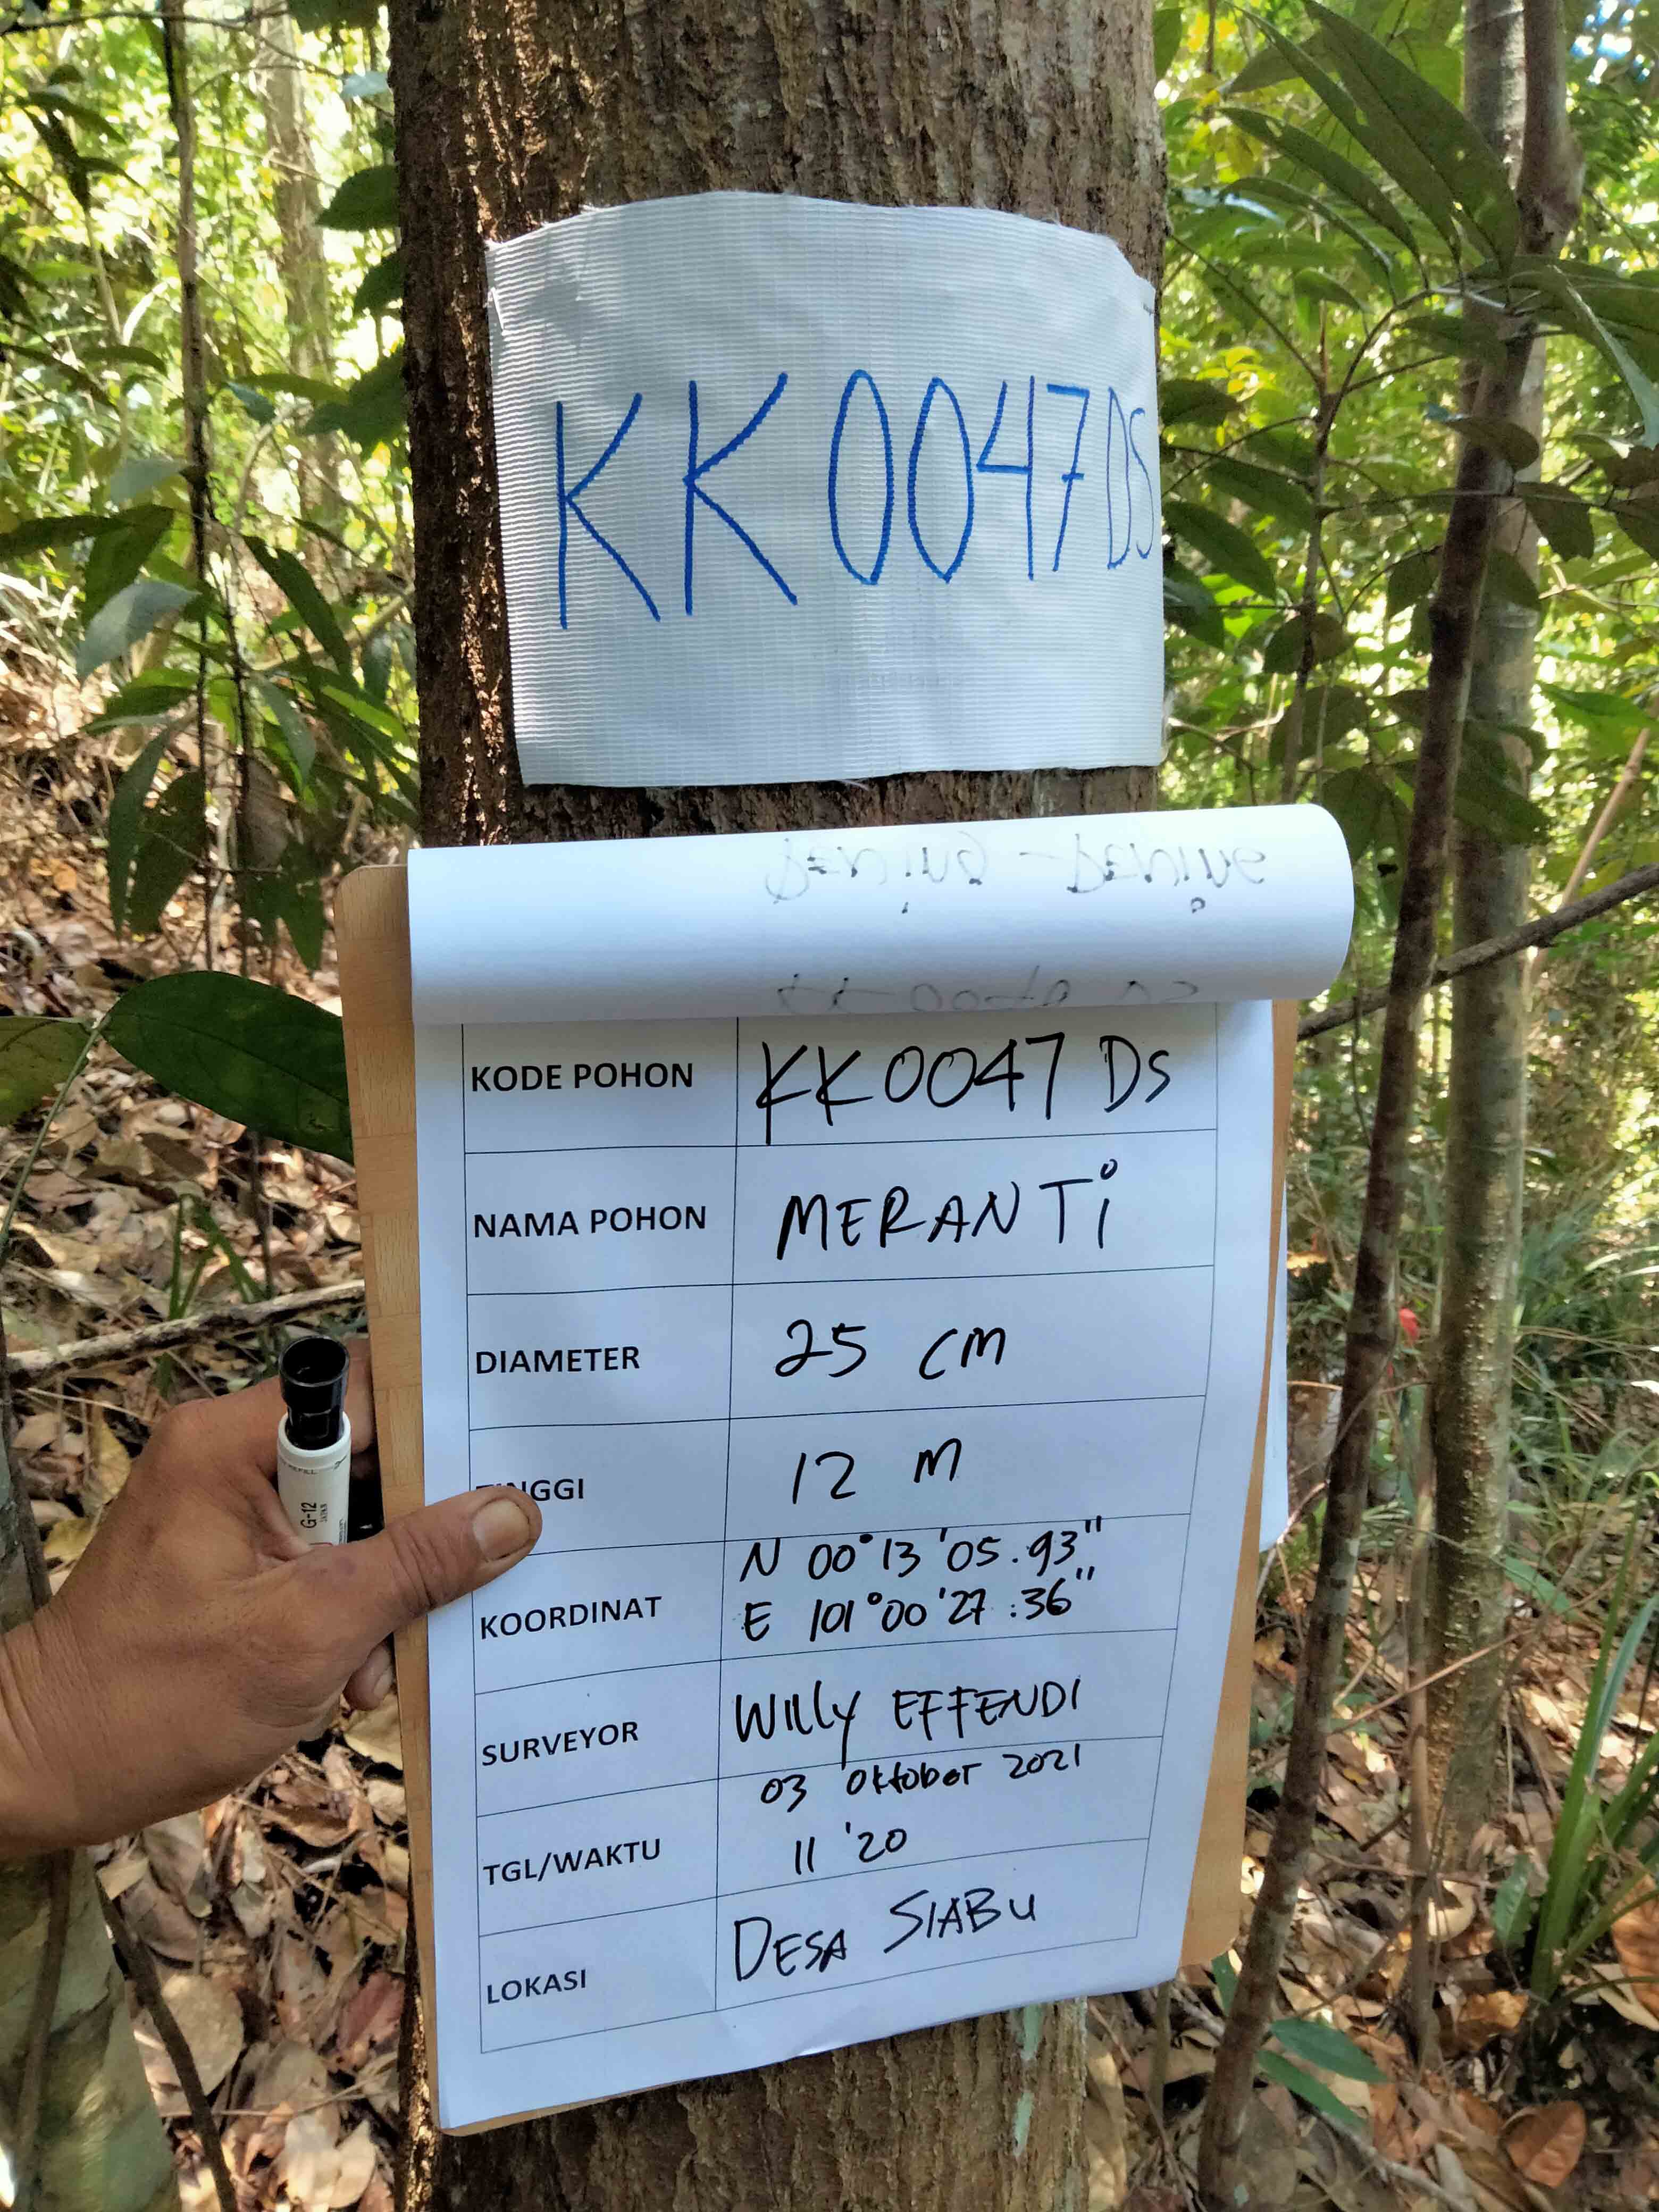 KK0047DS
KODE POHON KK0047 DS
NAMA POHON MERANTi
DIAMETER 25 cm
TINGGI 12 m
KOORDINAT N 00°13'05.93"
E 101°00'27:36"
SURVEYOR WILLY EFFENDI
TGL/WAKTU 03 Oktober 2021
11'20
LOKASI DESA SIABU
G-12
JAPAN